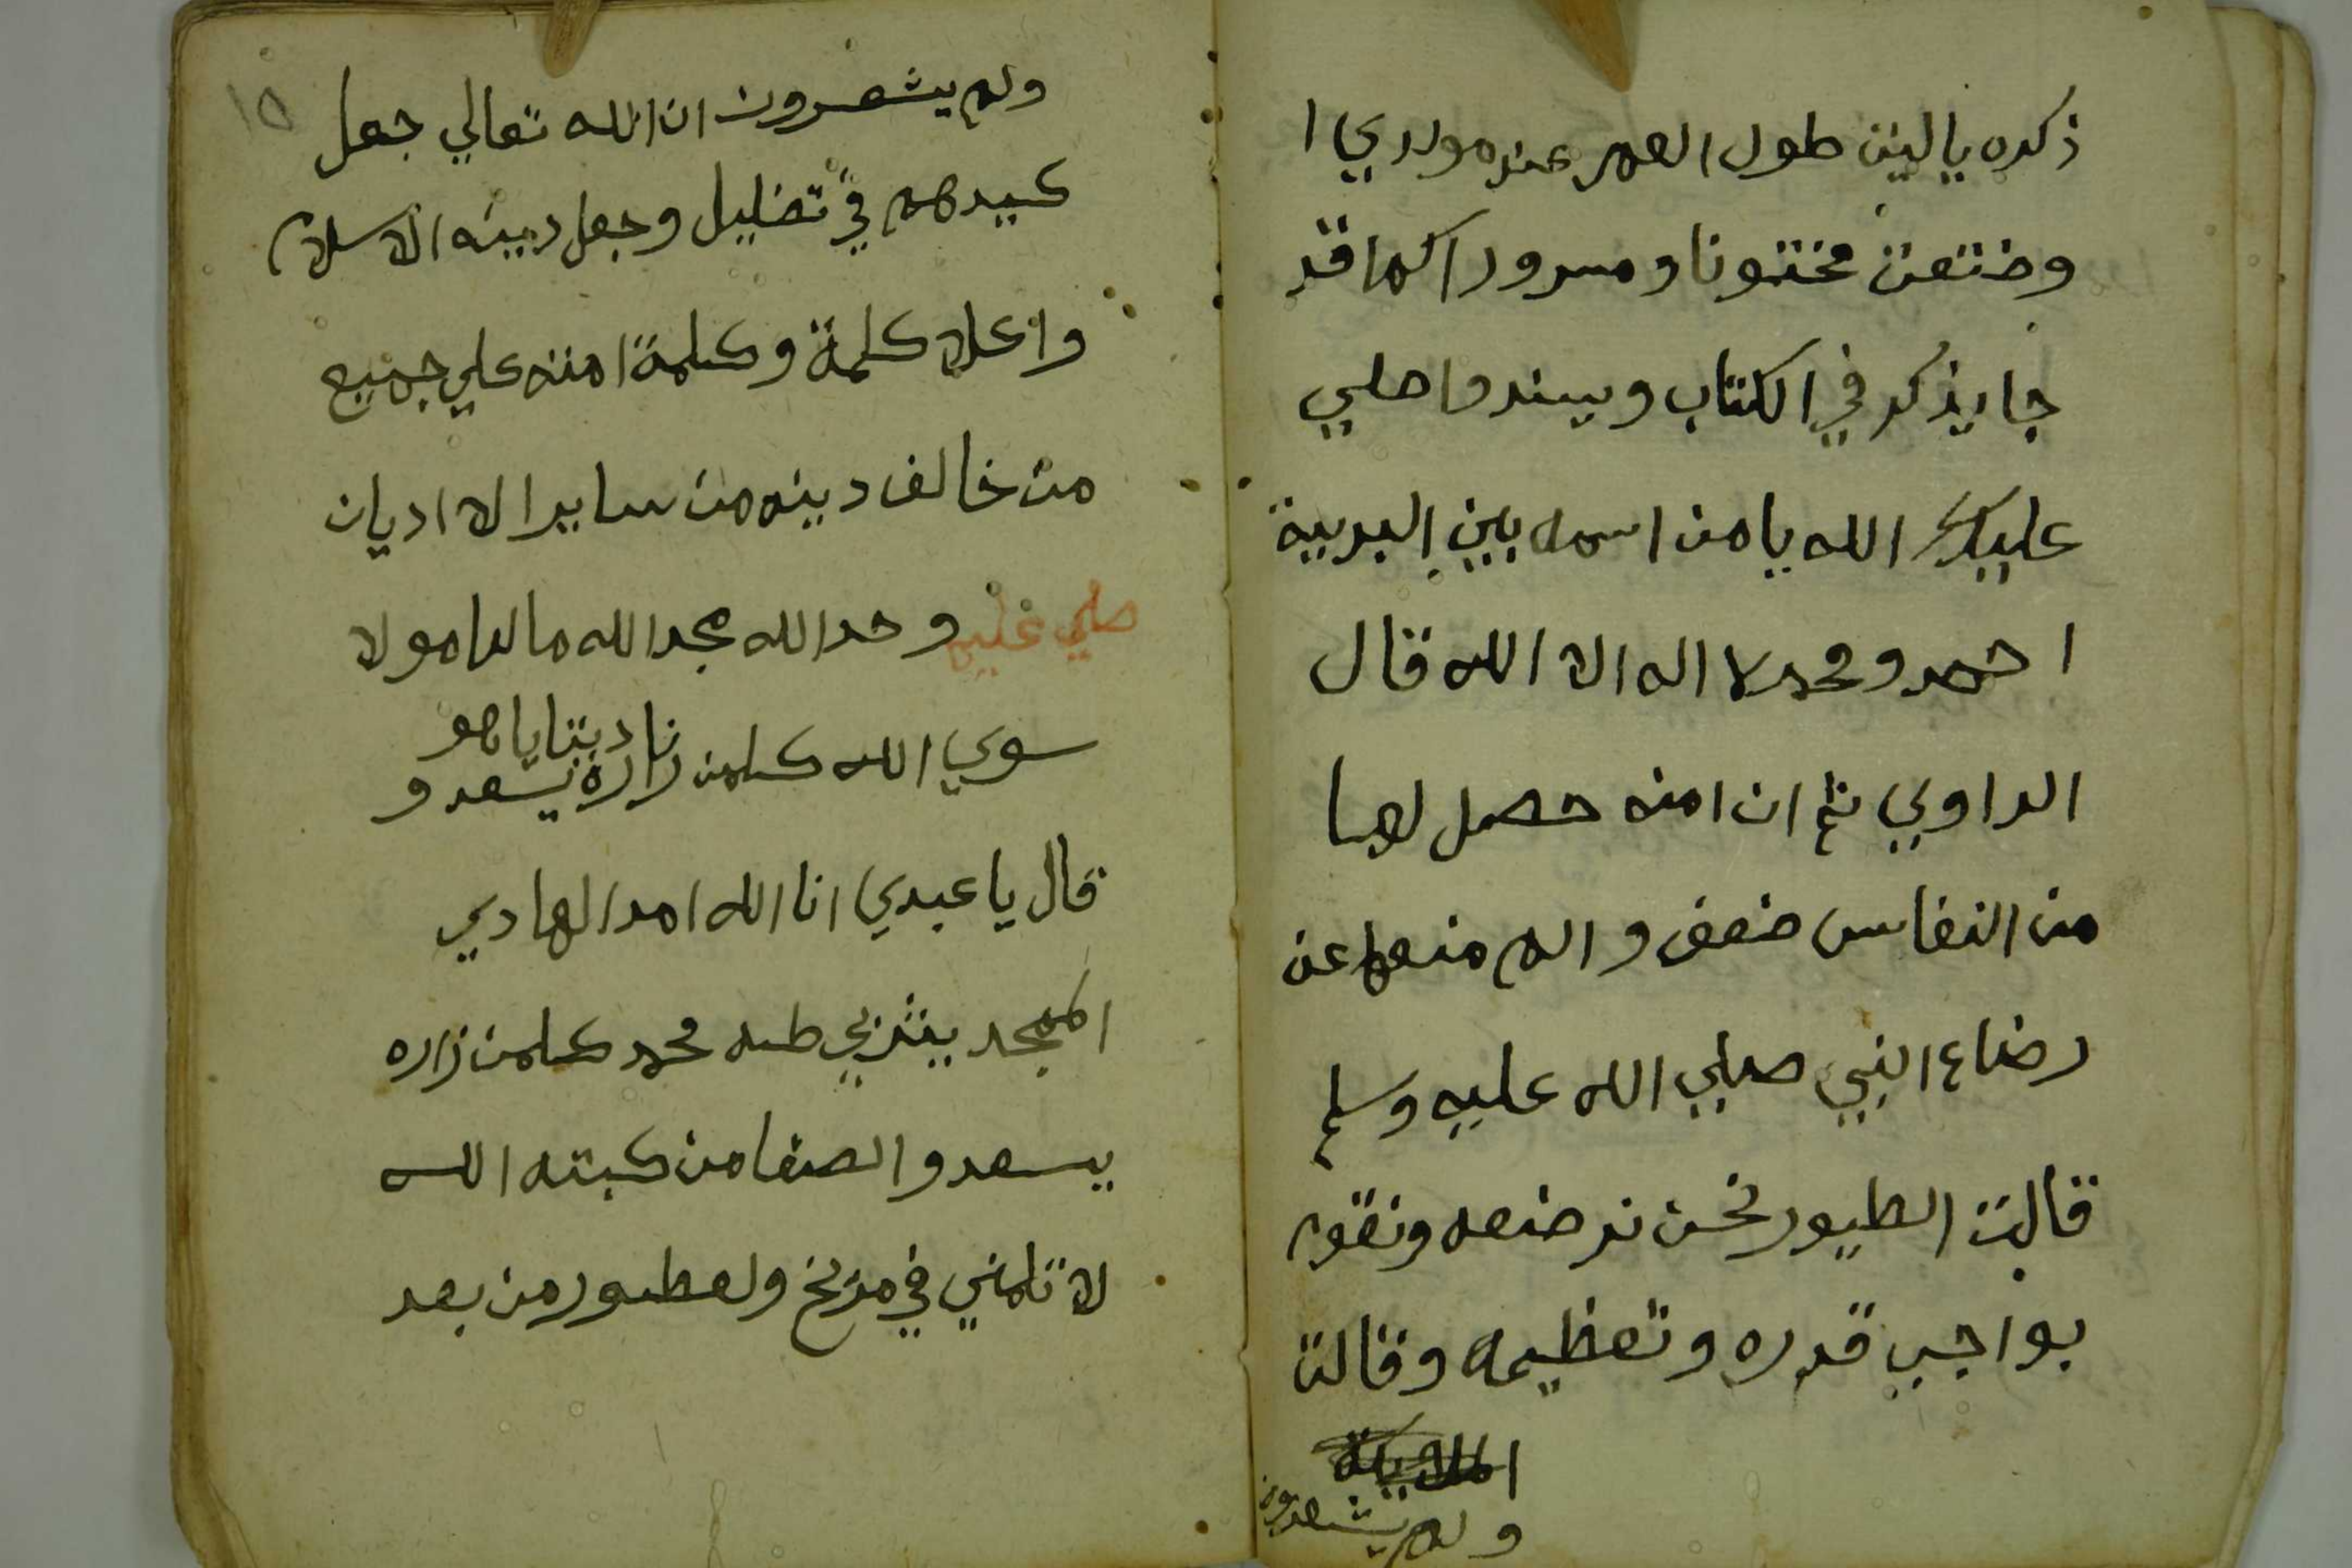 ذكره يا ليتن طول العمر عند مولدي ا
وضتعن مختونا ومسرورا كما قد
جا يذكر في الكتاب ويسند وا صلي
عليك الله يا من اسمه بين البرية
احمد ومحمد لا اله الا الله قال
الراوي ثم ان امنه حصل لها
من النفاس ضعف والم منعها عن
رضاع النبي صلي الله عليه وسلم
قالت الطيور نحن نرضعه ونقوم
بواجب قدره وتعظيمه وقالت
الملايكة
ولم يشعرون
١٥
ولم يشعرون ان الله تعالي جعل
كيدهم في تضليل وجعل دينه الاسلام
واعلا كلمة وكلمة امته علي جميع
من خالف دينه من ساير الاديان
صلي عليه وحد الله مجد الله ما لنا مولا
سوي الله كلمن زاره يسعد و
نادبتنا ياهو
قال يا عبدي انا الله امد الهادي
الممجد يثربي طه محمد كلمن زاره
يسعد والصفا من كبته الله
لا تلمني في مزلخ ولعطور من بعد